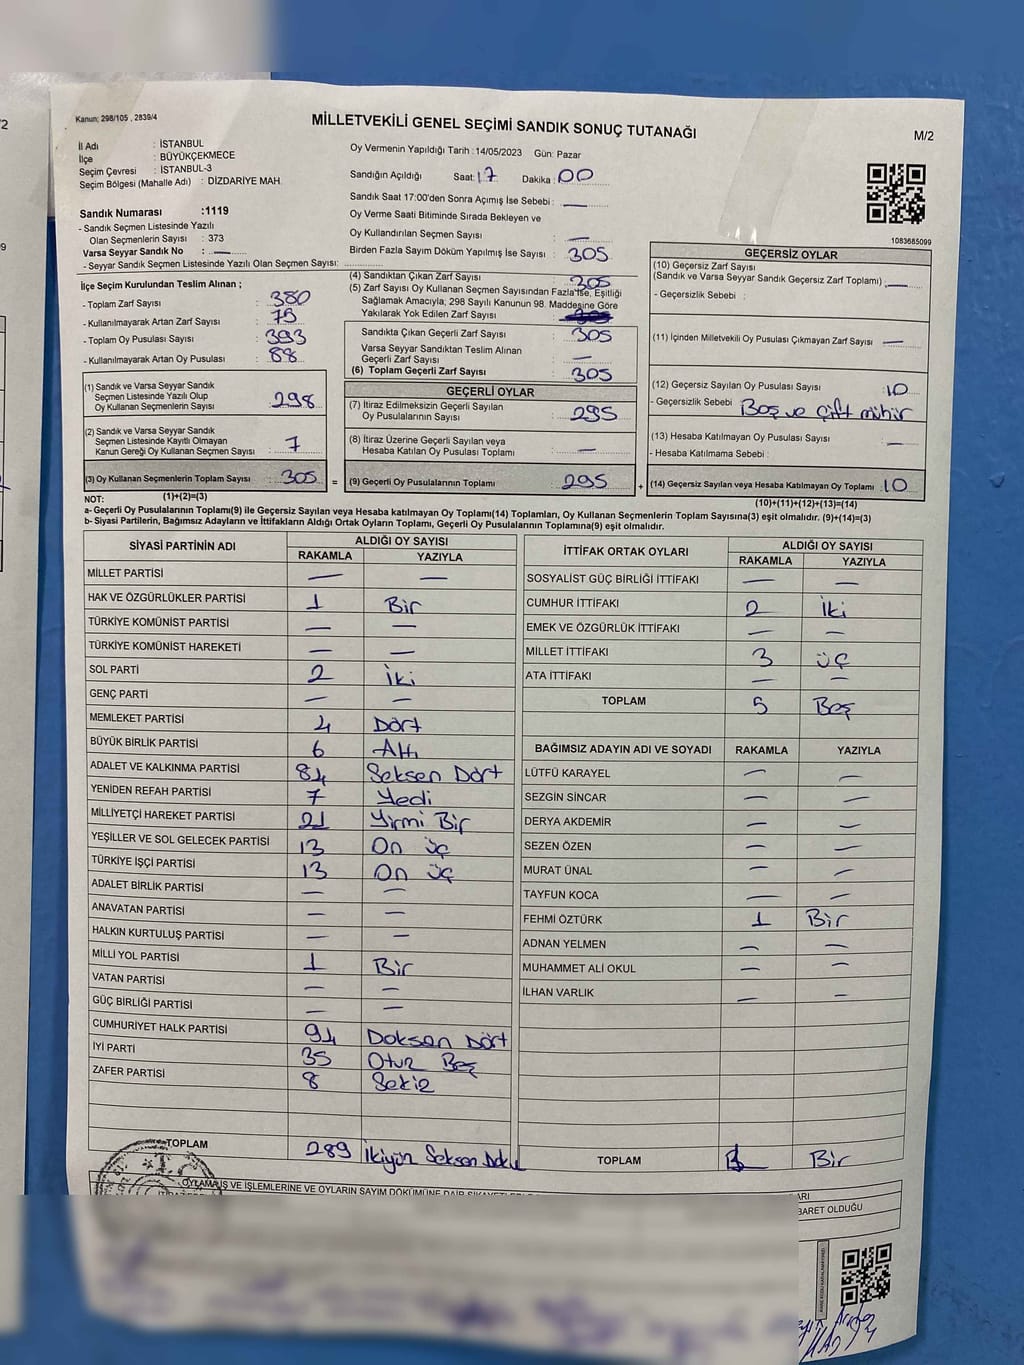 Kanun; 298/105 , 2839/4
MİLLETVEKİLİ GENEL SEÇİMİ SANDIK SONUÇ TUTANAĞI
M/2
İl Adı : İSTANBUL
İlçe : BÜYÜKÇEKMECE
Seçim Çevresi : İSTANBUL-3
Seçim Bölgesi (Mahalle Adı) : DİZDARİYE MAH.
Sandık Numarası :1119
- Sandık Seçmen Listesinde Yazılı
Olan Seçmenlerin Sayısı : 373
Varsa Seyyar Sandık No : —
- Seyyar Sandık Seçmen Listesinde Yazılı Olan Seçmen Sayısı:
Oy Vermenin Yapıldığı Tarih : 14/05/2023 Gün: Pazar
Sandığın Açıldığı Saat: 17 Dakika : 00
Sandık Saat 17:00'den Sonra Açımış İse Sebebi : —
Oy Verme Saati Bitiminde Sırada Bekleyen ve
Oy Kullandırılan Seçmen Sayısı : —
Birden Fazla Sayım Döküm Yapılmış İse Sayısı : 305
1083685099
İlçe Seçim Kurulundan Teslim Alınan ;
- Toplam Zarf Sayısı : 380
- Kullanılmayarak Artan Zarf Sayısı : 75
- Toplam Oy Pusulası Sayısı : 393
- Kullanılmayarak Artan Oy Pusulası : 88
(1) Sandık ve Varsa Seyyar Sandık
Seçmen Listesinde Yazılı Olup
Oy Kullanan Seçmenlerin Sayısı : 298
(2) Sandık ve Varsa Seyyar Sandık
Seçmen Listesinde Kayıtlı Olmayan
Kanun Gereği Oy Kullanan Seçmen Sayısı : 7
(3) Oy Kullanan Seçmenlerin Toplam Sayısı : 305 =
(4) Sandıktan Çıkan Zarf Sayısı : 305
(5) Zarf Sayısı Oy Kullanan Seçmen Sayısından Fazla İse, Eşitliği
Sağlamak Amacıyla, 298 Sayılı Kanunun 98. Maddesine Göre
Yakılarak Yok Edilen Zarf Sayısı :
Sandıkta Çıkan Geçerli Zarf Sayısı : 305
Varsa Seyyar Sandıktan Teslim Alınan
Geçerli Zarf Sayısı : —
(6) Toplam Geçerli Zarf Sayısı : 305
GEÇERLİ OYLAR
(7) İtiraz Edilmeksizin Geçerli Sayılan
Oy Pusulalarının Sayısı : 295
(8) İtiraz Üzerine Geçerli Sayılan veya
Hesaba Katılan Oy Pusulası Toplamı : —
(9) Geçerli Oy Pusulalarının Toplamı : 295 +
GEÇERSİZ OYLAR
(10) Geçersiz Zarf Sayısı
(Sandık ve Varsa Seyyar Sandık Geçersiz Zarf Toplamı) : —
- Geçersizlik Sebebi :
(11) İçinden Milletvekili Oy Pusulası Çıkmayan Zarf Sayısı : —
(12) Geçersiz Sayılan Oy Pusulası Sayısı : 10
- Geçersizlik Sebebi : Boş ve Çift mühür
(13) Hesaba Katılmayan Oy Pusulası Sayısı : —
- Hesaba Katılmama Sebebi :
(14) Geçersiz Sayılan veya Hesaba Katılmayan Oy Toplamı : 10
NOT: (1)+(2)=(3)
(10)+(11)+(12)+(13)=(14)
a- Geçerli Oy Pusulalarının Toplamı(9) ile Geçersiz Sayılan veya Hesaba katılmayan Oy Toplamı(14) Toplamları, Oy Kullanan Seçmenlerin Toplam Sayısına(3) eşit olmalıdır. (9)+(14)=(3)
b- Siyasi Partilerin, Bağımsız Adayların ve İttifakların Aldığı Ortak Oyların Toplamı, Geçerli Oy Pusulalarının Toplamına(9) eşit olmalıdır.
SİYASİ PARTİNİN ADI ALDIĞI OY SAYISI
RAKAMLA YAZIYLA
MİLLET PARTİSİ — —
HAK VE ÖZGÜRLÜKLER PARTİSİ 1 Bir
TÜRKİYE KOMÜNİST PARTİSİ — —
TÜRKİYE KOMÜNİST HAREKETİ — —
SOL PARTİ 2 iki
GENÇ PARTİ — —
MEMLEKET PARTİSİ 4 Dört
BÜYÜK BİRLİK PARTİSİ 6 Altı
ADALET VE KALKINMA PARTİSİ 84 Seksen Dört
YENİDEN REFAH PARTİSİ 7 Yedi
MİLLİYETÇİ HAREKET PARTİSİ 21 Yirmi Bir
YEŞİLLER VE SOL GELECEK PARTİSİ 13 On üç
TÜRKİYE İŞÇİ PARTİSİ 13 On üç
ADALET BİRLİK PARTİSİ — —
ANAVATAN PARTİSİ — —
HALKIN KURTULUŞ PARTİSİ — —
MİLLİ YOL PARTİSİ 1 Bir
VATAN PARTİSİ — —
GÜÇ BİRLİĞİ PARTİSİ — —
CUMHURİYET HALK PARTİSİ 94 Doksan Dört
İYİ PARTİ 35 Otuz Beş
ZAFER PARTİSİ 8 Sekiz
TOPLAM 289 İkiyüz Seksen Dokuz
İTTİFAK ORTAK OYLARI ALDIĞI OY SAYISI
RAKAMLA YAZIYLA
SOSYALİST GÜÇ BİRLİĞİ İTTİFAKI — —
CUMHUR İTTİFAKI 2 İki
EMEK VE ÖZGÜRLÜK İTTİFAKI — —
MİLLET İTTİFAKI 3 üç
ATA İTTİFAKI — —
TOPLAM 5 Beş
BAĞIMSIZ ADAYIN ADI VE SOYADI RAKAMLA YAZIYLA
LÜTFÜ KARAYEL — —
SEZGİN SİNCAR — —
DERYA AKDEMİR — —
SEZEN ÖZEN — —
MURAT ÜNAL — —
TAYFUN KOCA — —
FEHMİ ÖZTÜRK 1 Bir
ADNAN YELMEN — —
MUHAMMET ALİ OKUL — —
İLHAN VARLIK — —
TOPLAM 1 Bir
OYLAMA İŞ VE İŞLEMLERINE VE OYLARIN SAYIM DÖKÜMÜNE DAİR
ARI
BARET OLDUĞU